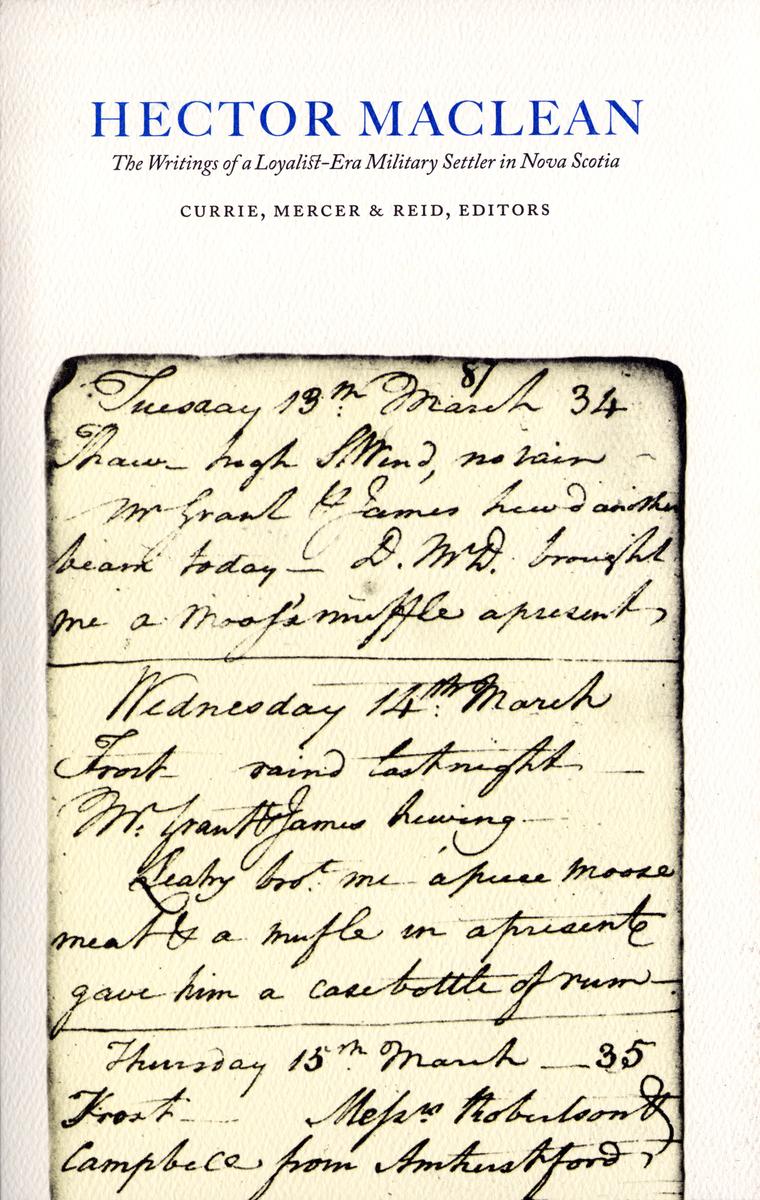 HECTOR MACLEAN
The Writings of a Loyalist-Era Military Settler in Nova Scotia
CURRIE, MERCER & REID, EDITORS
Tuesday 13th March 87 34
Thaw high S.Wind, no rain
Mr Grant & James hew'd another
beam today — D. McD. brought
me a Moose's muffle a present,
Wednesday 14th March
Frost raind last night —
Mr. Grant & James hewing
Leahy brot. me a piece moose
meat & a mufle in a present &
gave him a case bottle of rum
Thursday 15th March — 35
Frost — Messrs Robertson &
Campbell from Amherst ford,